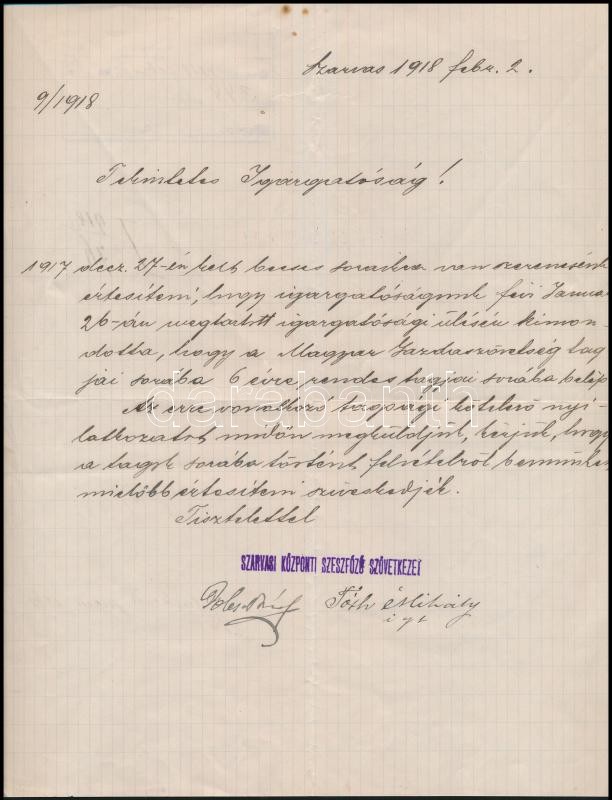 Szarvas 1918 febr. 2.
9/1918
Tekintetes Igazgatóság!
1917 decz. 27-én kelt becses soraikra van szerencsénk
értesíteni, hogy igazgatóságunk
26-án megtartott igazgatósági ülésén kimon-
dotta, hogy a Magyar Gazdaszövetség tag
jai sorába 6 évre rendes tagjai sorába belép
Az erre vonatkozó tagsági kötelező nyi-
latkozatot midőn megküldjük, kérjük, hogy
a tagok sorába történt felvételről bennünket
mielőbb értesíteni szíveskedjék.
Tisztelettel
SZARVASI KÖZPONTI SZESZFŐZŐ SZÖVETKEZET
Tóth Mihály
darabanth